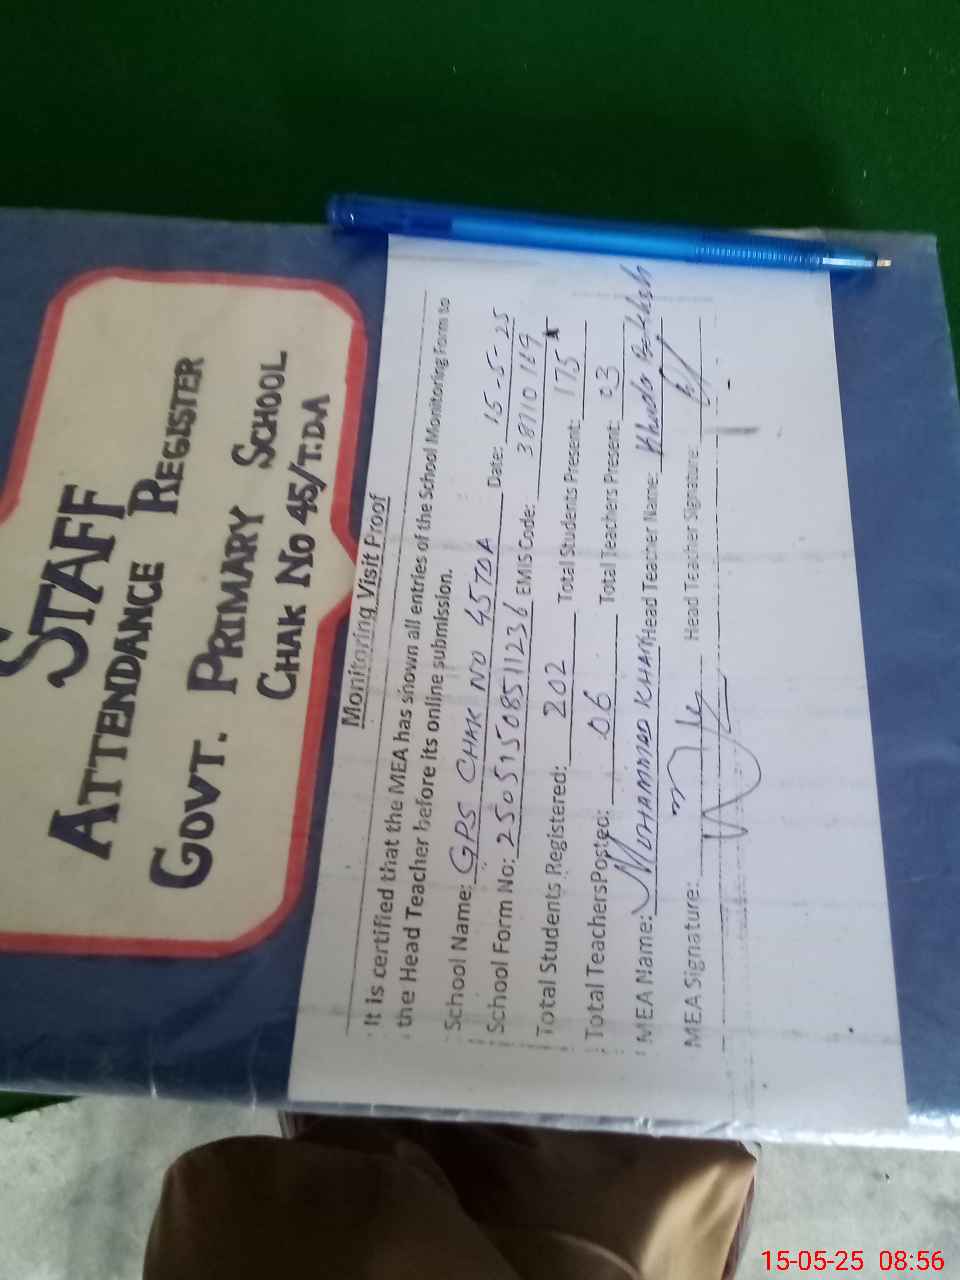 STAFF
ATTENDANCE REGISTER
GOVT. PRIMARY SCHOOL
CHAK NO 45/T.DA
Monitoring Visit Proof
It is certified that the MEA has shown all entries of the School Monitoring Form to
the Head Teacher before its online submission.
School Name: GPS CHAK NO 45TDA Date: 15-5-25
School Form No: 25051508511236 EMIS Code: 38710169
Total Students Registered: 202 Total Students Present: 175
Total TeachersPosted: 06 Total Teachers Present: 03
MEA Name: MUHAMMAD KHAN Head Teacher Name: Khuda Bakhsh
MEA Signature: Head Teacher Signature:
15-05-25 08:56